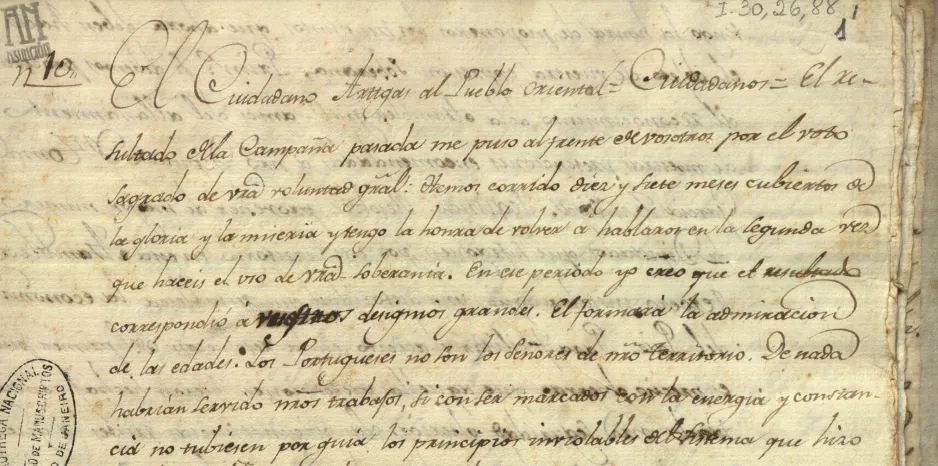 AN
Asunción
I-30,26,88
1
n 10
El Ciudadano Artigas al Pueblo Oriental = Ciudadanos = El re-
sultado de la Campaña pasada me puso al frente de vosotros por el voto
sagrado de vrã voluntad gral: Hemos corrido diez y siete meses cubiertos de
la gloria y la miseria y tengo la honra de volver a hablaros en la segunda vez
que haceis el uso de vrã soberania. En ese periodo yo creo que el resultado
correspondió a vuestros designios grandes. El formará la admiracion
de las edades. Los Portugueses no son los señores de nrõ territorio. De nada
habrian servido nrõs trabajos, si con ser marcados con la energia y constan-
cia no tubiesen por guia los principios inviolables del sistema que hizo
OTHECA NACIONAL
O DE MANUSCRIPTOS
DE JANEIRO